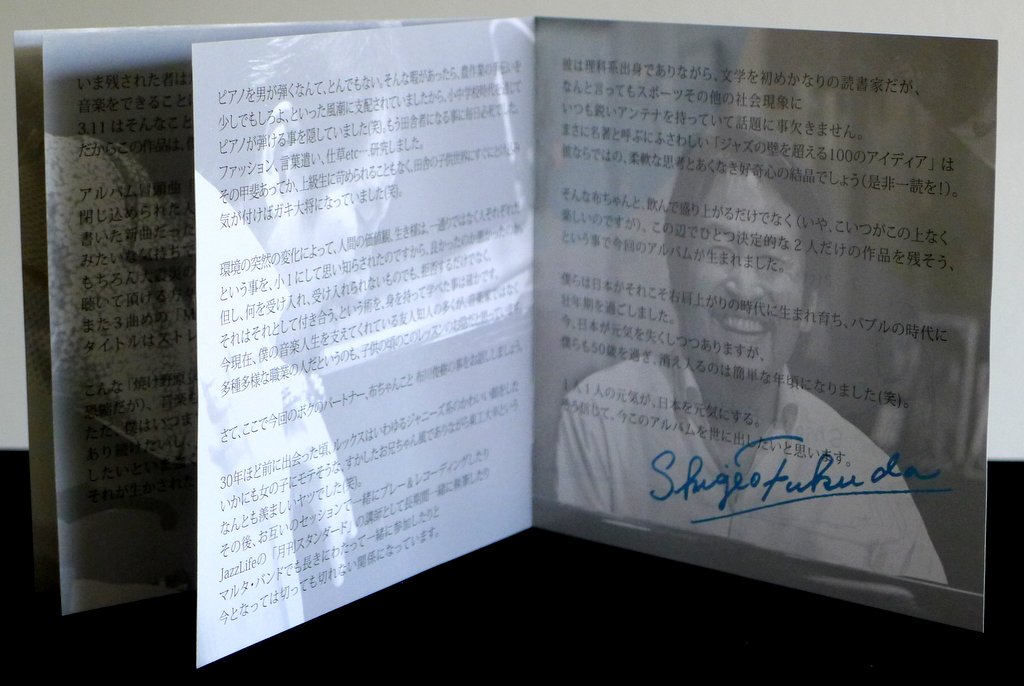 いま残された者は
音楽をできること
3.11 はそんなこと
だからこの作品は、
アルバム冒頭曲
閉じ込められた人
書いた新曲だった
みたいな気持ちで
もちろん大震災の
聴いて頂ける方
また3曲めの、「M
タイトルはストレ
こんな「焼け野原
恐縮だが)、音楽も
ただ、僕はいつま
あり続けたいし、
したいといま
それが生かされた
ピアノを男が弾くなんて、とんでもない。そんな暇があったら、農作業の手伝いを
少しでもしろよ、といった風潮に支配されていましたから、小中学校時代を通じて
ピアノが弾ける事を隠していました(笑)。もう田舎者になる事に毎日必死でした。
ファッション、言葉遣い、仕草etc…研究しました。
その甲斐あってか、上級生に苛められることもなく、田舎の子供世界にすぐにとけ込み
気が付けばガキ大将になっていました(笑)。
環境の突然の変化によって、人間の価値観、生き様は、一通りではなく人それぞれだ
という事を、小1にして思い知らされたのですから、良かったのか悪かったのか。
但し、何を受け入れ、受け入れられないものでも、拒否するだけでなく、
それはそれとして付き合う、という術を、身を持って学べた事は確かです。
今現在、僕の音楽人生を支えてくれている友人知人の多くが、音楽家ではなく
多種多様な職業の人だというのも、子供の頃のこのレッスンのお陰だと思っています。
さて、ここで今回のボクのパートナー、布ちゃんこと 布川俊樹の事をお話しましょう。
30年ほど前に出会った頃、ルックスはいわゆるジャニーズ系のかわいい顔をした
いかにも女の子にモテそうな、すかしたお兄ちゃん風でありながら東工大卒という
なんとも羨ましいヤツでした(笑)。
その後、お互いのセッションで一緒にプレー&レコーディングしたり
JazzLifeの「月刊スタンダード」の講師として長期間一緒に執筆したり
マルタ・バンドでも長きにわたって一緒に参加したりと
今となっては切っても切れない関係になっています。
彼は理科系出身でありながら、文学を初めかなりの読書家だが、
なんと言ってもスポーツその他の社会現象に
いつも鋭いアンテナを持っていて話題に事欠きません。
まさに名著と呼ぶにふさわしい「ジャズの壁を超える100のアイディア」は
彼ならではの、柔軟な思考とあくなき好奇心の結晶でしょう(是非一読を!)。
そんな布ちゃんと、飲んで盛り上がるだけでなく(いや、こいつがこの上なく
楽しいのですが)、この辺でひとつ決定的な2人だけの作品を残そう、
という事で今回のアルバムが生まれました。
僕らは日本がそれこそ右肩上がりの時代に生まれ育ち、バブルの時代に
壮年期を過ごしました。
今、日本が元気を失くしつつありますが、
僕らも50歳を過ぎ、消え入るのは簡単な年頃になりました(笑)。
1人1人の元気が、日本を元気にする。
そう信じて、今このアルバムを世に出したいと思います。
Shigeo Fukuda